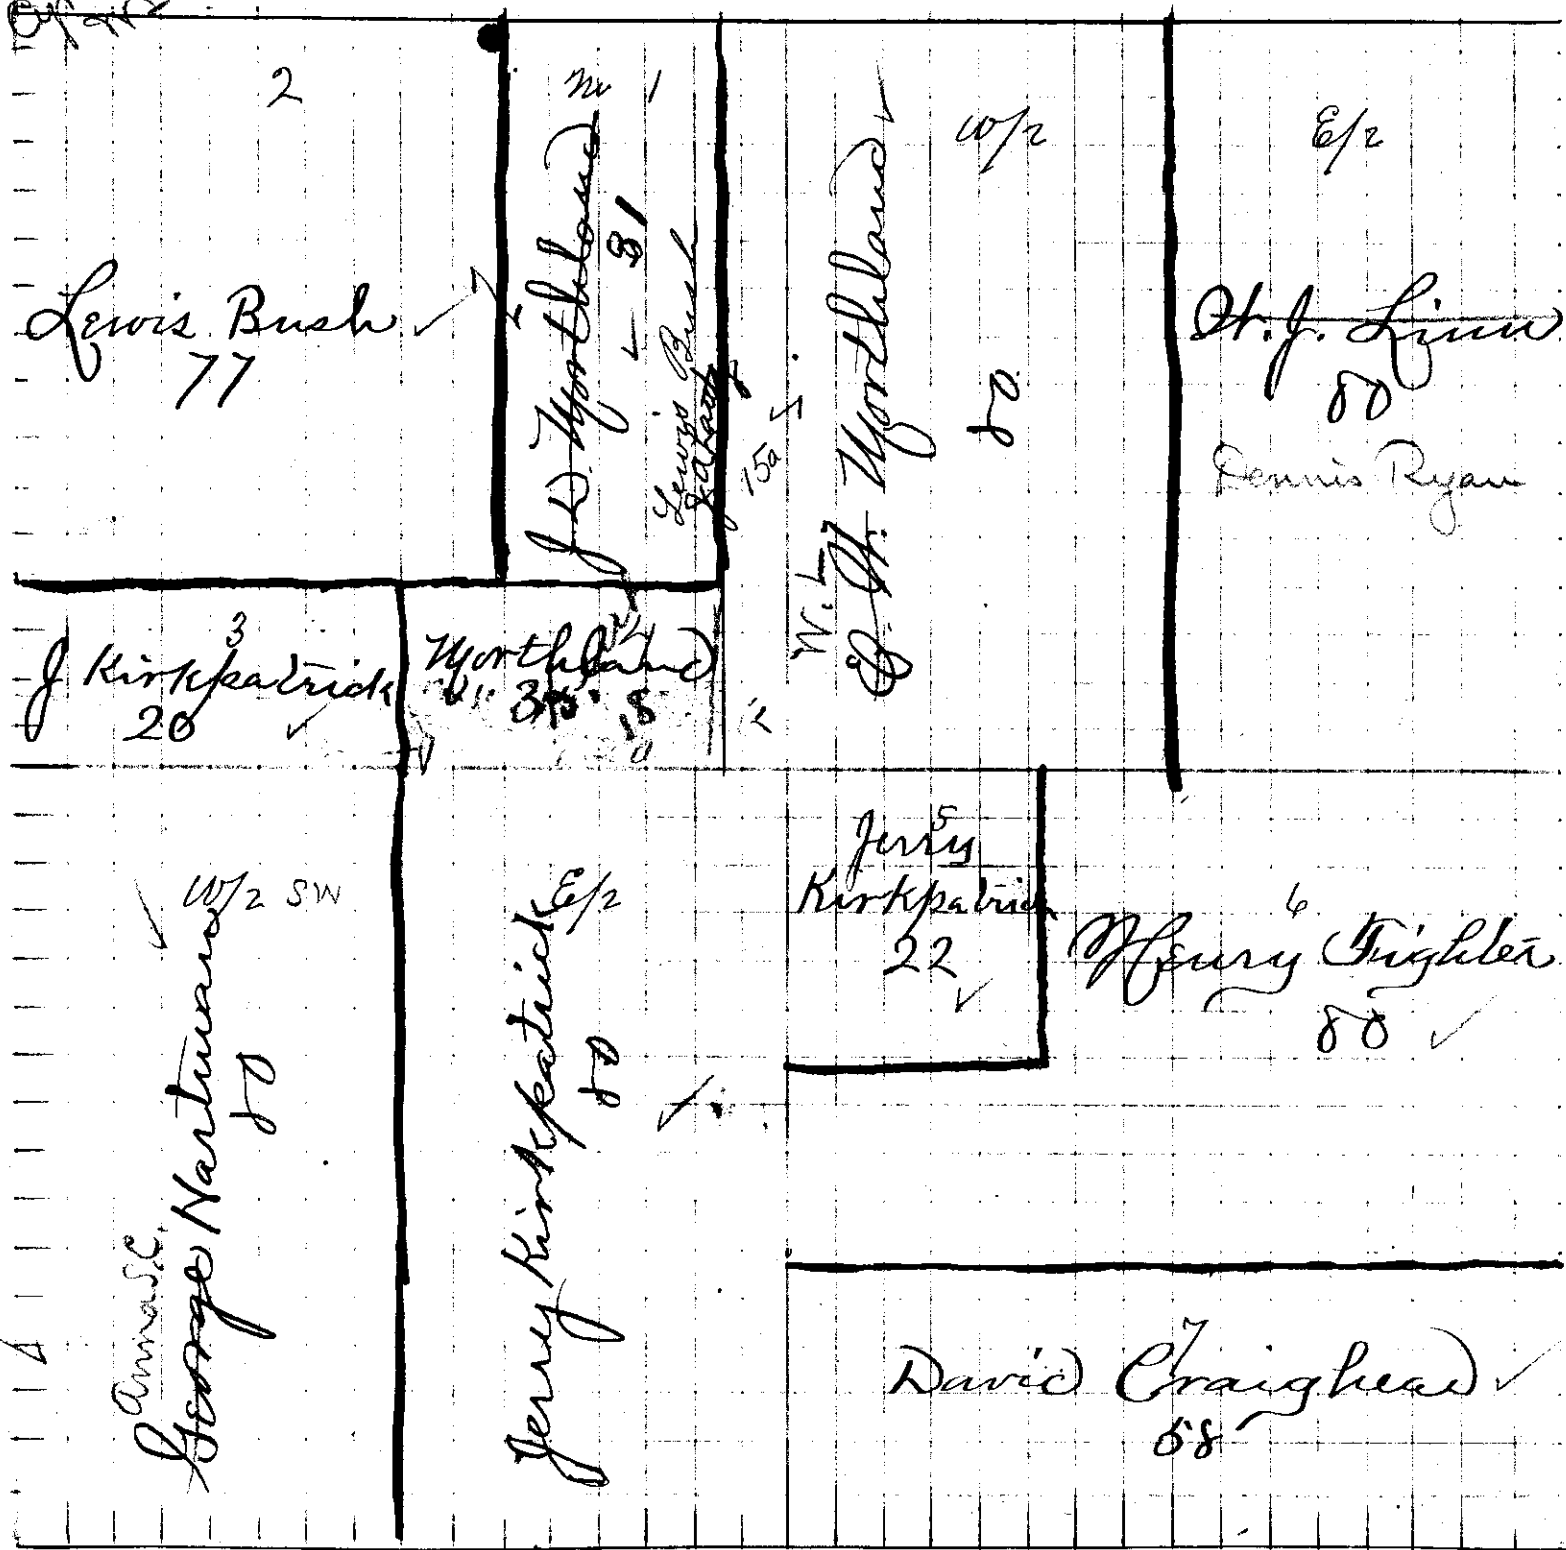 2
Lewis Bush ✓
77
1
J. D. Northland
31
Lewis Bush
15a
W/2
W. L.
E. H. Northland ✓
80
E/2
H. J. Linn
80
Dennis Ryan
3
J Kirkpatrick
20 ✓
4
Northland
18
W/2 SW
Anna S.C.
George Hartman
80
E/2
Jerry Kirkpatrick
80
5
Jerry
Kirkpatrick
22 ✓
6
Henry Fighter
80 ✓
7
David Craighead ✓
58